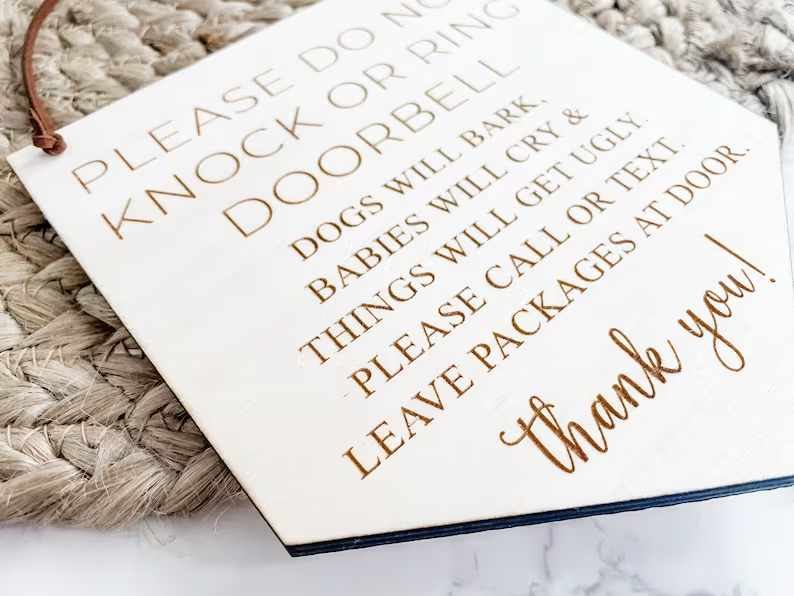 PLEASE DO NO
KNOCK OR RING
DOORBELL
DOGS WILL BARK,
BABIES WILL CRY &
THINGS WILL GET UGLY.
PLEASE CALL OR TEXT.
LEAVE PACKAGES AT DOOR.
thank you!